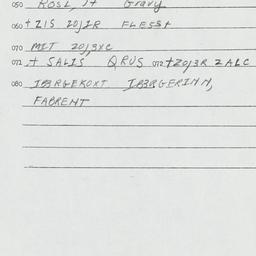 050 ROSL, JT Gravy
060 + ZIS 20J2R FLESST
070 MIT 20J3XC
072 + SALIS QRUS 072 + 20J3R 2 ALC
080 IBERGEKOXT IBERGERINN,
FABRENT